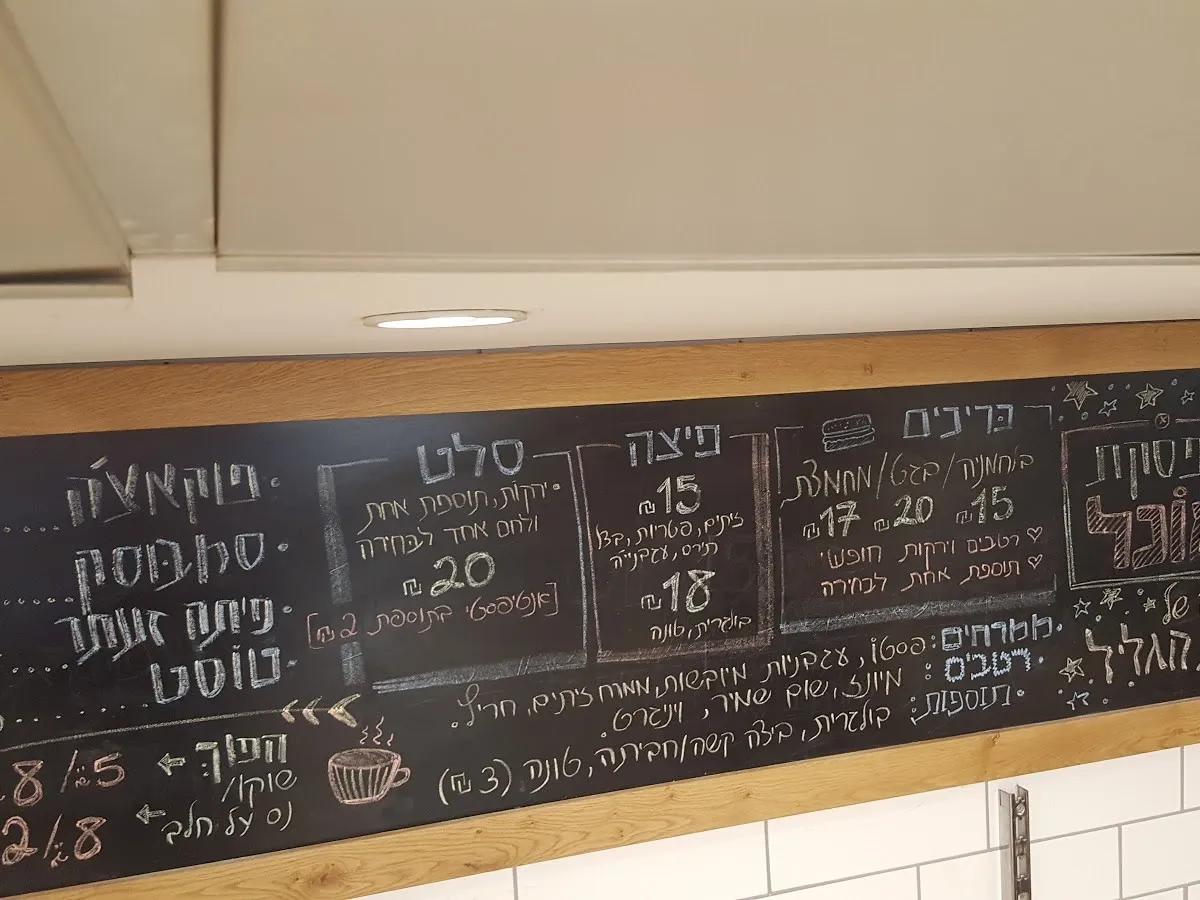 פסקת
של
הגליל
כריכים
בלחמניה/בגט/מחמצת
15₪ 20₪ 17₪
רטבים וירקות חופשי
תוספת אחת לבחירה
פיצה
15₪
זיתים, פטריות, בצל
תירס, עגבנייה
18₪
בולגרית, טונה
סלט
ירקות, תוספת אחת
ולחם אחד לבחירה
20₪
[אנטיפסטי בתוספת 2₪]
ממרחים: פסטו, עגבניות מיובשות, ממרח זיתים, חריף.
רטבים: מיונז, שום שמיר, וינגרט.
תוספות: בולגרית, ביצה קשה/חביתה, טונה (3₪)
פוקאצ'ה
סמבוסק
פיתה זעתר
טוסט
הפוך
שוקו/
נס על חלב
5/8
8/